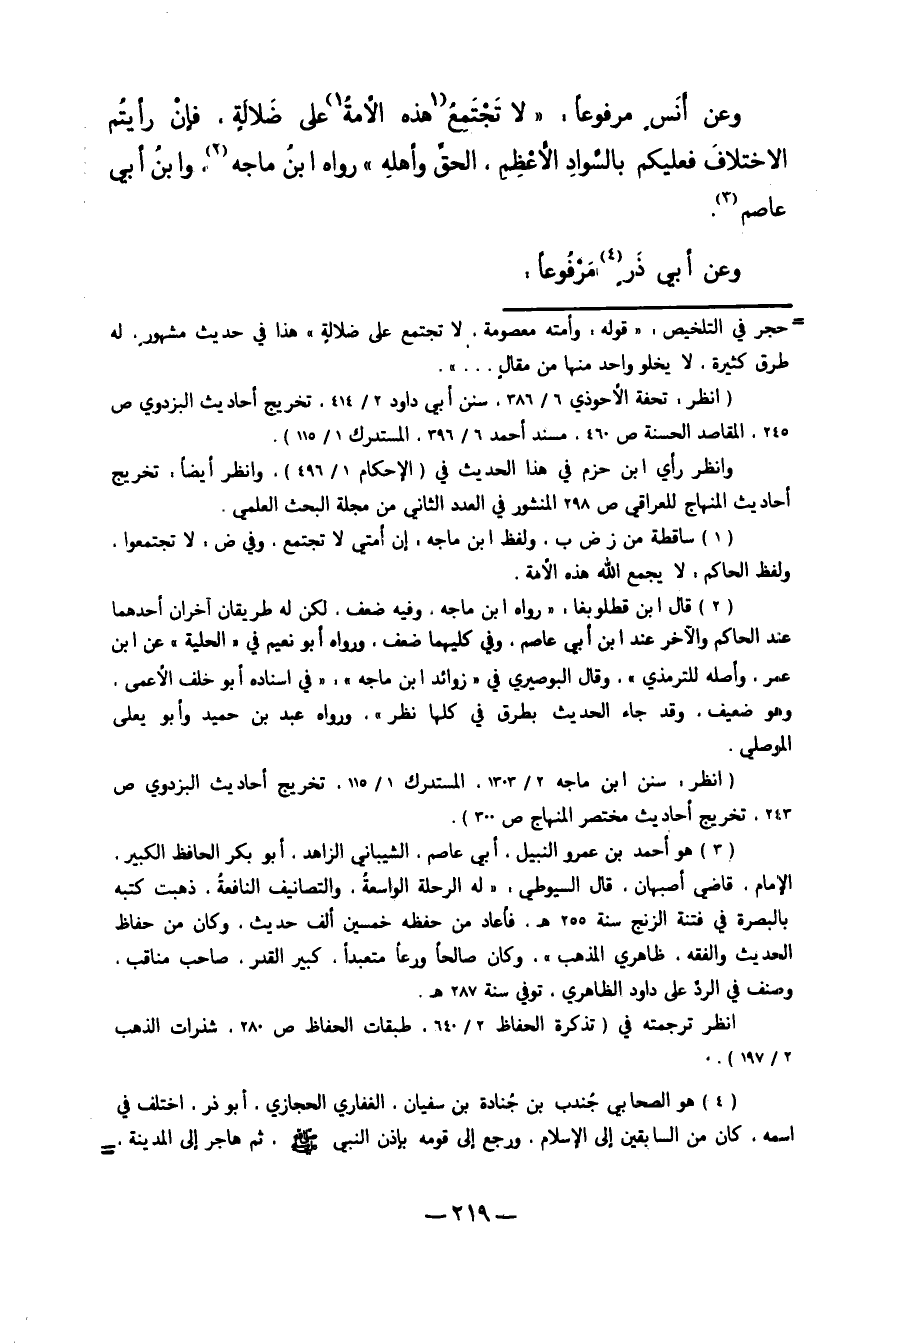 وعن أنَسٍ مرفوعاً : « لا تَجْتَمِعُ (١) هذه الأمةُ (١) على ضَلالَةٍ ، فإنْ رأيتُم
الاختلافَ فعليكم بالسَّوادِ الأعْظِمِ ، الحقِّ وأهلهِ » رواه ابنُ ماجه (٢) ، وابنُ أبي
عاصم (٣) .
وعن أبي ذَرٍ (٤) مَرْفُوعاً :
= حجر في التلخيص : « قوله : وأمته معصومة ، لا تجتمع على ضلالةٍ » هذا في حديث مشهورٍ ، له
طرق كثيرة ، لا يخلو واحد منها من مقالٍ . . . » .
( انظر : تحفة الأحوذي ٦ / ٣٨٦ ، سنن أبي داود ٢ / ٤١٤ ، تخريج أحاديث البزدوي ص
٢٤٥ ، المقاصد الحسنة ص ٤٦٠ ، مسند أحمد ٦ / ٣٩٦ ، المستدرك ١ / ١١٥ ) .
وانظر رأي ابن حزم في هذا الحديث في ( الإحكام ١ / ٤٩٦ ) ، وانظر أيضاً : تخريج
أحاديث المنهاج للعراقي ص ٢٩٨ المنشور في العدد الثاني من مجلة البحث العلمي .
( ١ ) ساقطة من ز ض ب ، ولفظ ابن ماجه : إن أمتي لا تجتمع ، وفي ض : لا تجتمعوا ،
ولفظ الحاكم : لا يجمع الله هذه الأمة .
( ٢ ) قال ابن قطلوبغا : « رواه ابن ماجه ، وفيه ضعف ، لكن له طريقان آخران أحدهما
عند الحاكم والآخر عند ابن أبي عاصم ، وفي كليهما ضعف ، ورواه أبو نعيم في « الحلية » عن ابن
عمر ، وأصله للترمذي » ، وقال البوصيري في « زوائد ابن ماجه » : « في اسناده أبو خلف الأعمى ،
وهو ضعيف ، وقد جاء الحديث بطرق في كلها نظر » ، ورواه عبد بن حميد وأبو يعلى
الموصلي .
( انظر : سنن ابن ماجه ٢ / ١٣٠٣ ، المستدرك ١ / ١١٥ ، تخريج أحاديث البزدوي ص
٢٤٣ ، تخريج أحاديث مختصر المنهاج ص ٣٠٠ ) .
( ٣ ) هو أحمد بن عمرو النبيل ، أبي عاصم ، الشيباني الزاهد ، أبو بكر الحافظ الكبير ،
الإمام ، قاضي أصبهان ، قال السيوطي : « له الرحلة الواسعةُ ، والتصانيف النافعةُ ، ذهبت كتبه
بالبصرة في فتنة الزنج سنة ٢٥٥ هـ ، فأعاد من حفظه خمسين ألف حديث ، وكان من حفاظ
الحديث والفقه ، ظاهري المذهب » ، وكان صالحاً ورعاً متعبداً ، كبير القدر ، صاحب مناقب ،
وصنف في الردّ على داود الظاهري ، توفي سنة ٢٨٧ هـ .
انظر ترجمته في ( تذكرة الحفاظ ٢ / ٦٤٠ ، طبقات الحفاظ ص ٢٨٠ ، شذرات الذهب
٢ / ١٩٧ ) .
( ٤ ) هو الصحابي جُندب بن جُنادة بن سفيان ، الغفاري الحجازي ، أبو ذر ، اختلف في
اسمه ، كان من السابقين إلى الإسلام ، ورجع إلى قومه بإذن النبي ﷺ ، ثم هاجر إلى المدينة ، =
— ٢١٩ —